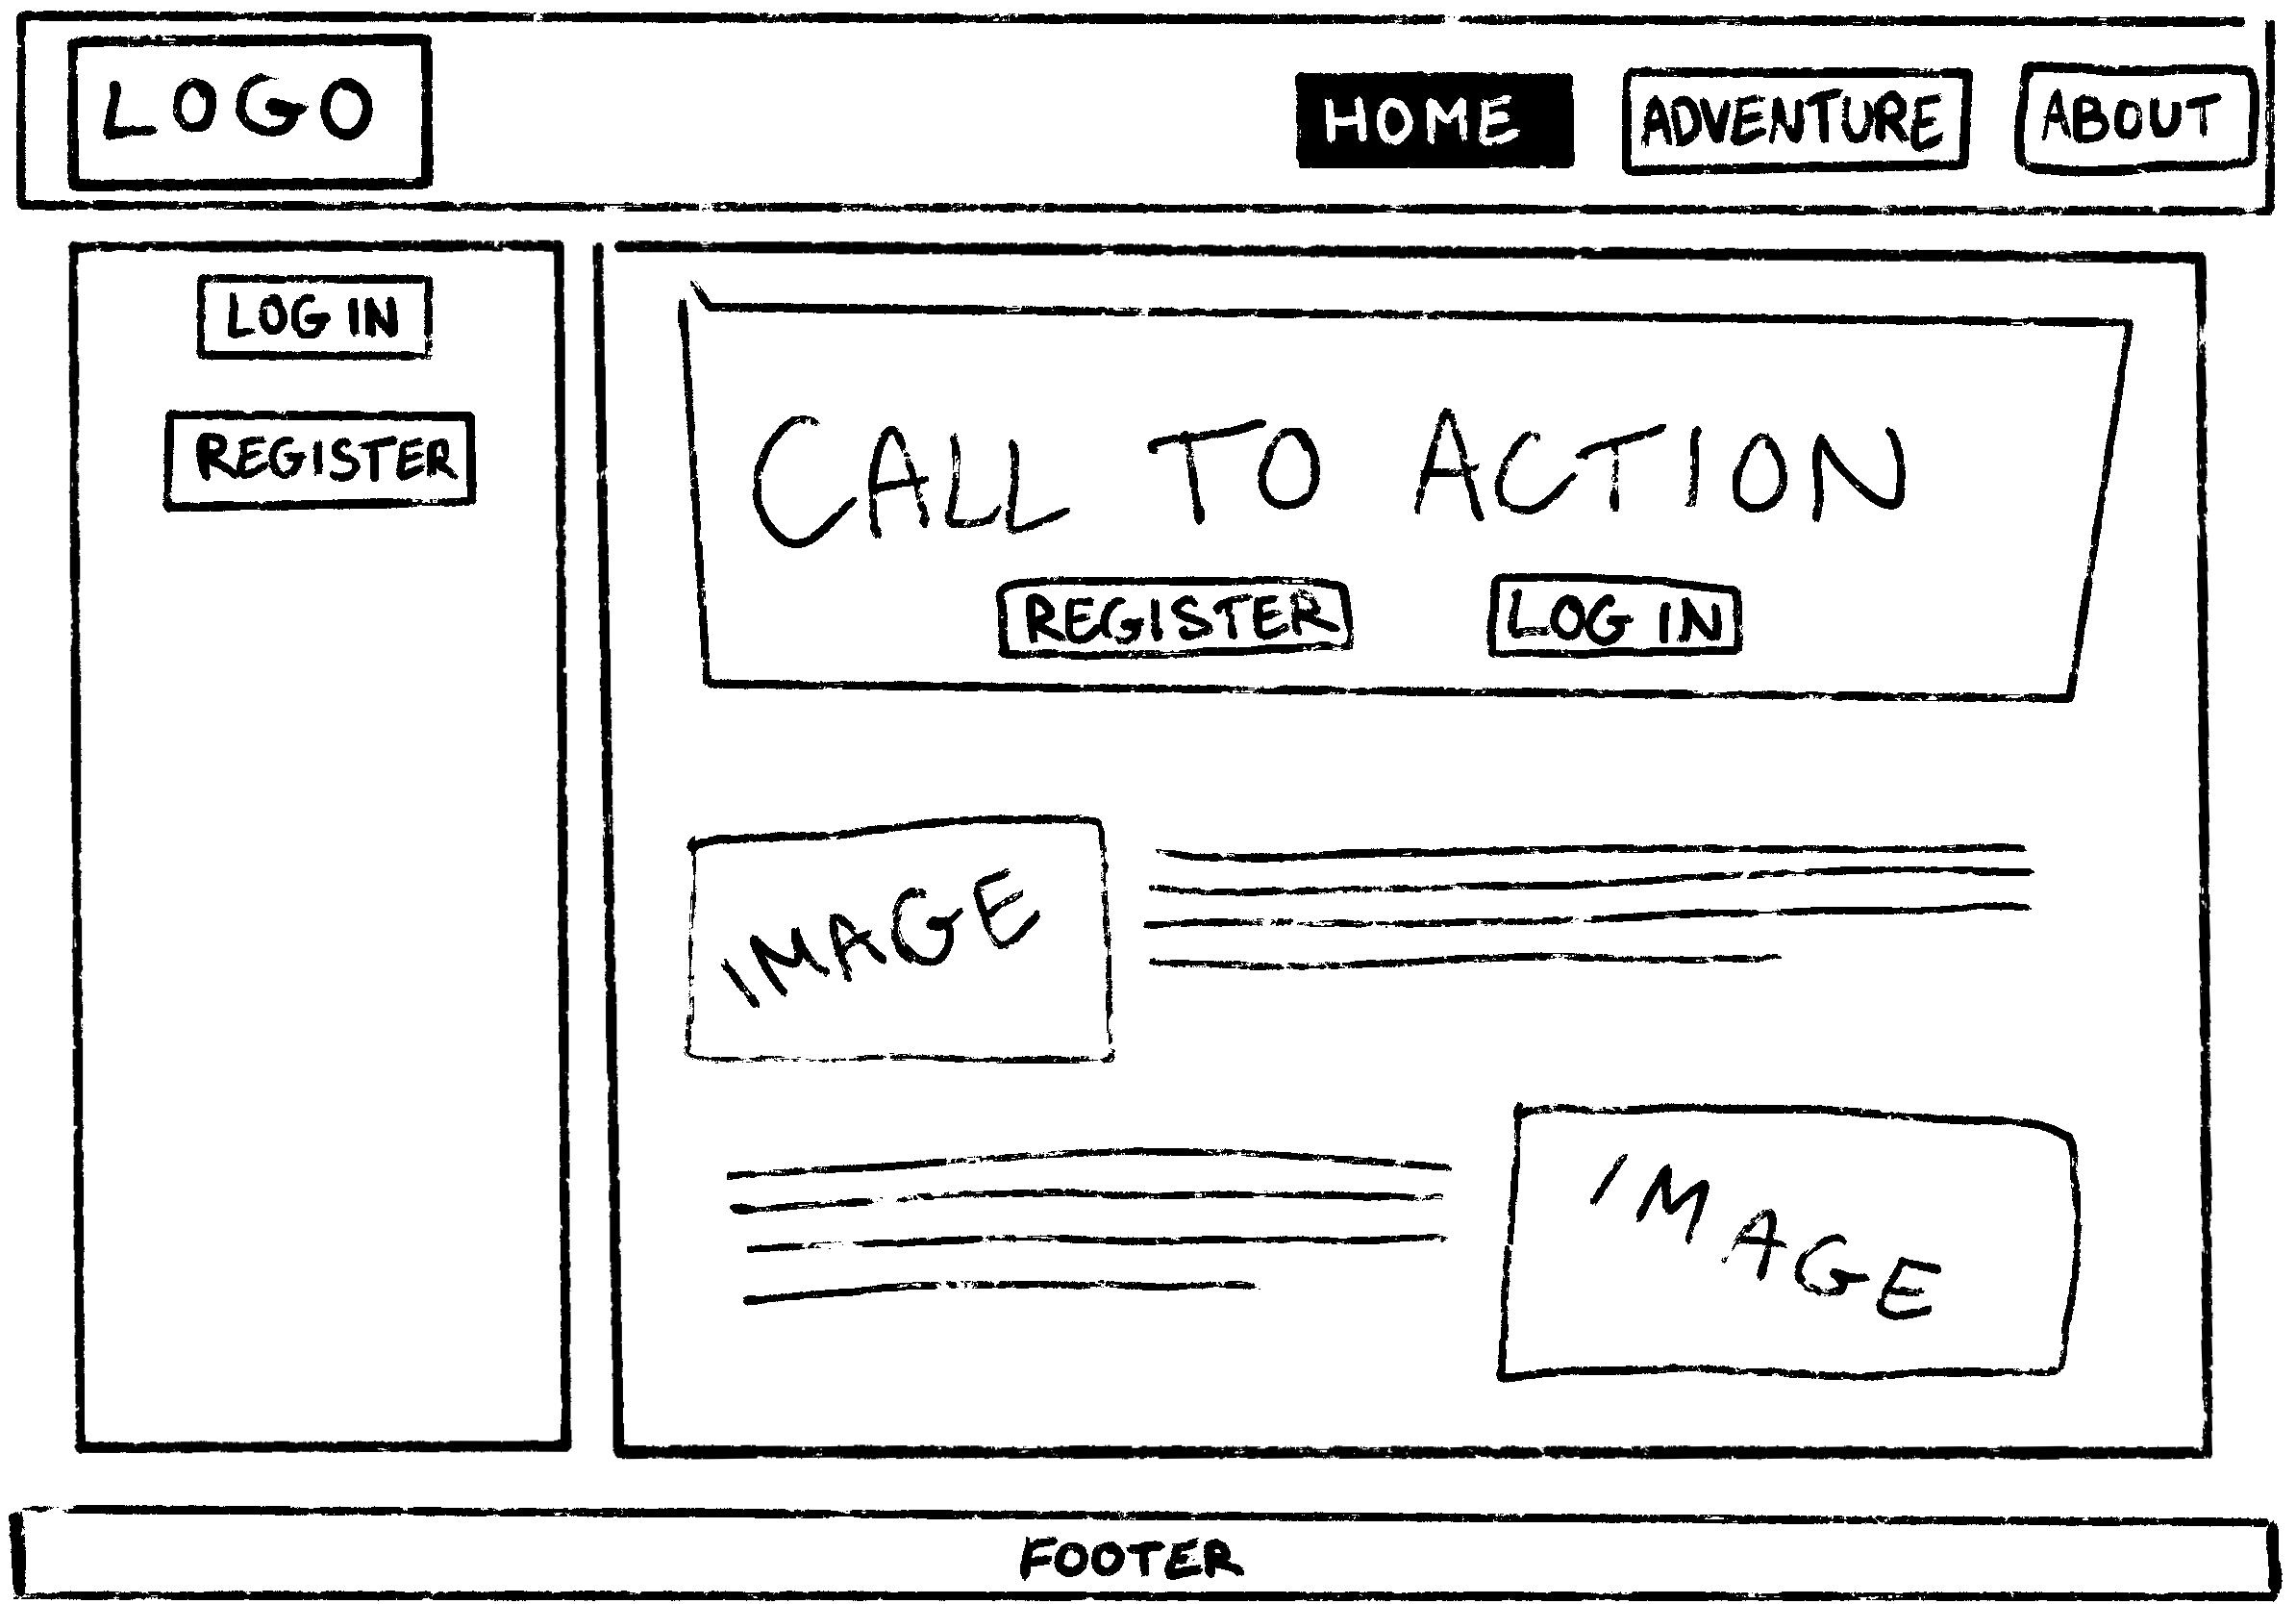 LOGO
HOME ADVENTURE ABOUT
LOG IN
REGISTER
CALL TO ACTION
REGISTER LOG IN
IMAGE
IMAGE
FOOTER